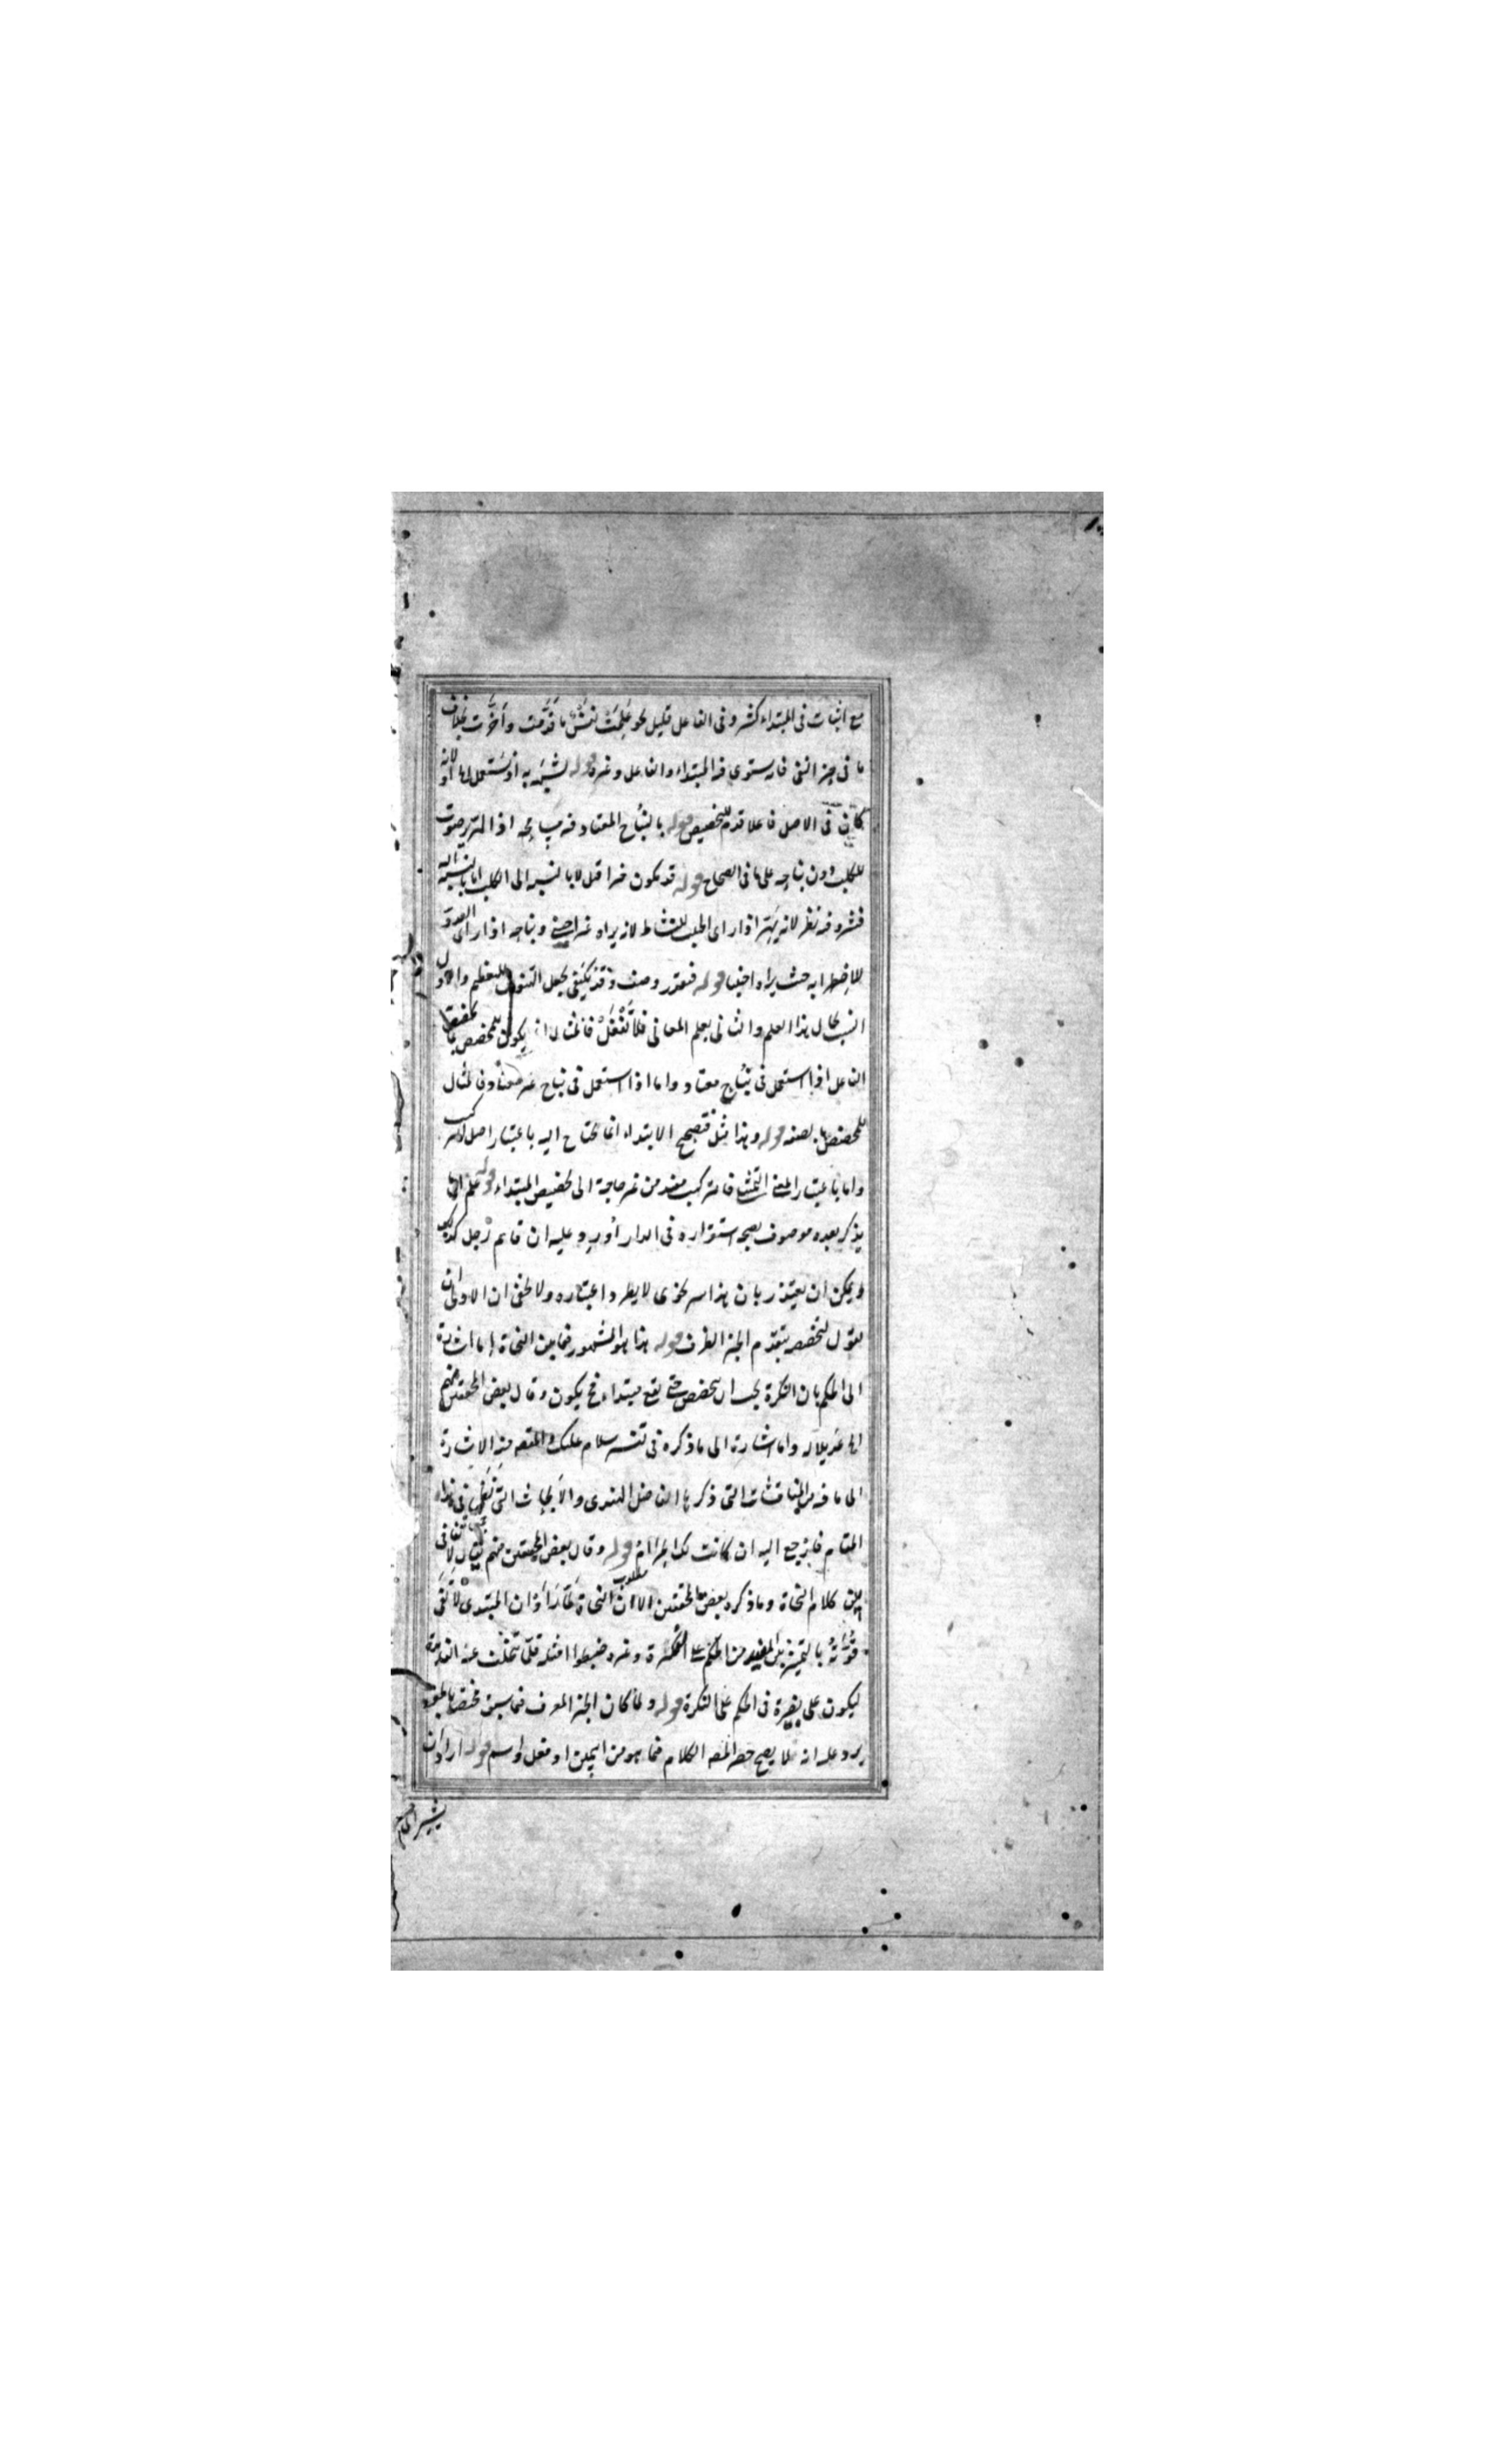 مع اثبات فى المبتداء كثير وفى الفاعل قليل نحو عَلِمَتْ نفسٌ ما قَدَّمت وأخَّرت بخلاف
ما فى حيز النفى فانه يستوى فيه المبتداء والفاعل وغيره قوله لشبهه به أو يستعمل لانه
كان فى الاصل فاعلا قدم للتخصيص قوله بالنباح المعتاد اذا الهرير صوت
للكلب دون نباحه على ما فى الصحاح قوله قد يكون خيرا قيل لا بالنسبة الى الكلب اما بالنسبة اليه
فشر وفيه نظر لانه يهر اذا راى الحبيب للنشاط لانه يراه غير اجنبى ونباحه اذا راى العدو
للاضطرابه حيث يراه اجنبيا قوله فيقدر وصف وقد يكتفى بجعل التنوين للتعظيم والاول
انسب بحال هذا العلم والثانى بعلم المعانى فلا تَغْفَلْ فالمثال انما يكون للمخصص بما يخصص به
الفاعل اذا استعمل فى نباح معتاد واما اذا استعمل فى نباح غير معتاد فالمثال
للمخصص بالصفة قوله وهذا مثل فتصحيح الابتداء انما يحتاج اليه باعتبار اصل التركيب
واما باعتبار المعنى التمثيلى فالتركيب مفيد من غير حاجة الى تخصيص المبتداء قوله علم ان ما
يذكر بعده موصوف بصحة استقراره فى الدار أورد عليه ان قائم رجل كذلك
ويمكن ان يعتذر بان هذا سر نحوى لا يطرد اعتباره ولا يخفى ان الاولى ان
يقول لتخصصه بتقدم الخبر الظرف قوله هذا هو المشهور فيما بين النحاة اما اشارة
الى الحكم بان النكرة يجب ان تخصص حتى يقع مبتداء فح يكون وقال بعض المحققين منهم
واما اشارة الى ما ذكره فى تفسير سلام عليك والمقصود منه الاشارة
الى ما فيه من المناقشات التى ذكرها الفاضل الهندى والأبحاث التى فى هذا
المقام فارجع اليه ان كانت لك قوله وقال بعض المحققين منهم يقال لا تنافى
بين كلام النحاة وما ذكره بعض المحققين الا ان النحاة لمّا رَأَوْا ان المبتدى لا تفى
قُوَّتُه بالتميز بين المفيد من الحكم على النكرة وغيره ضبطوا امثلة قلّ تخلف عنه الفائدة
ليكون على بصيرة فى الحكم على النكرة قوله ولما كان الخبر المعرف فيما سبق مختصا بالمفرد
يرد عليه انه لا يصح حصر المص الكلام فيما هو من اسمين او فعل واسم قوله اراد ان
يشير الخ